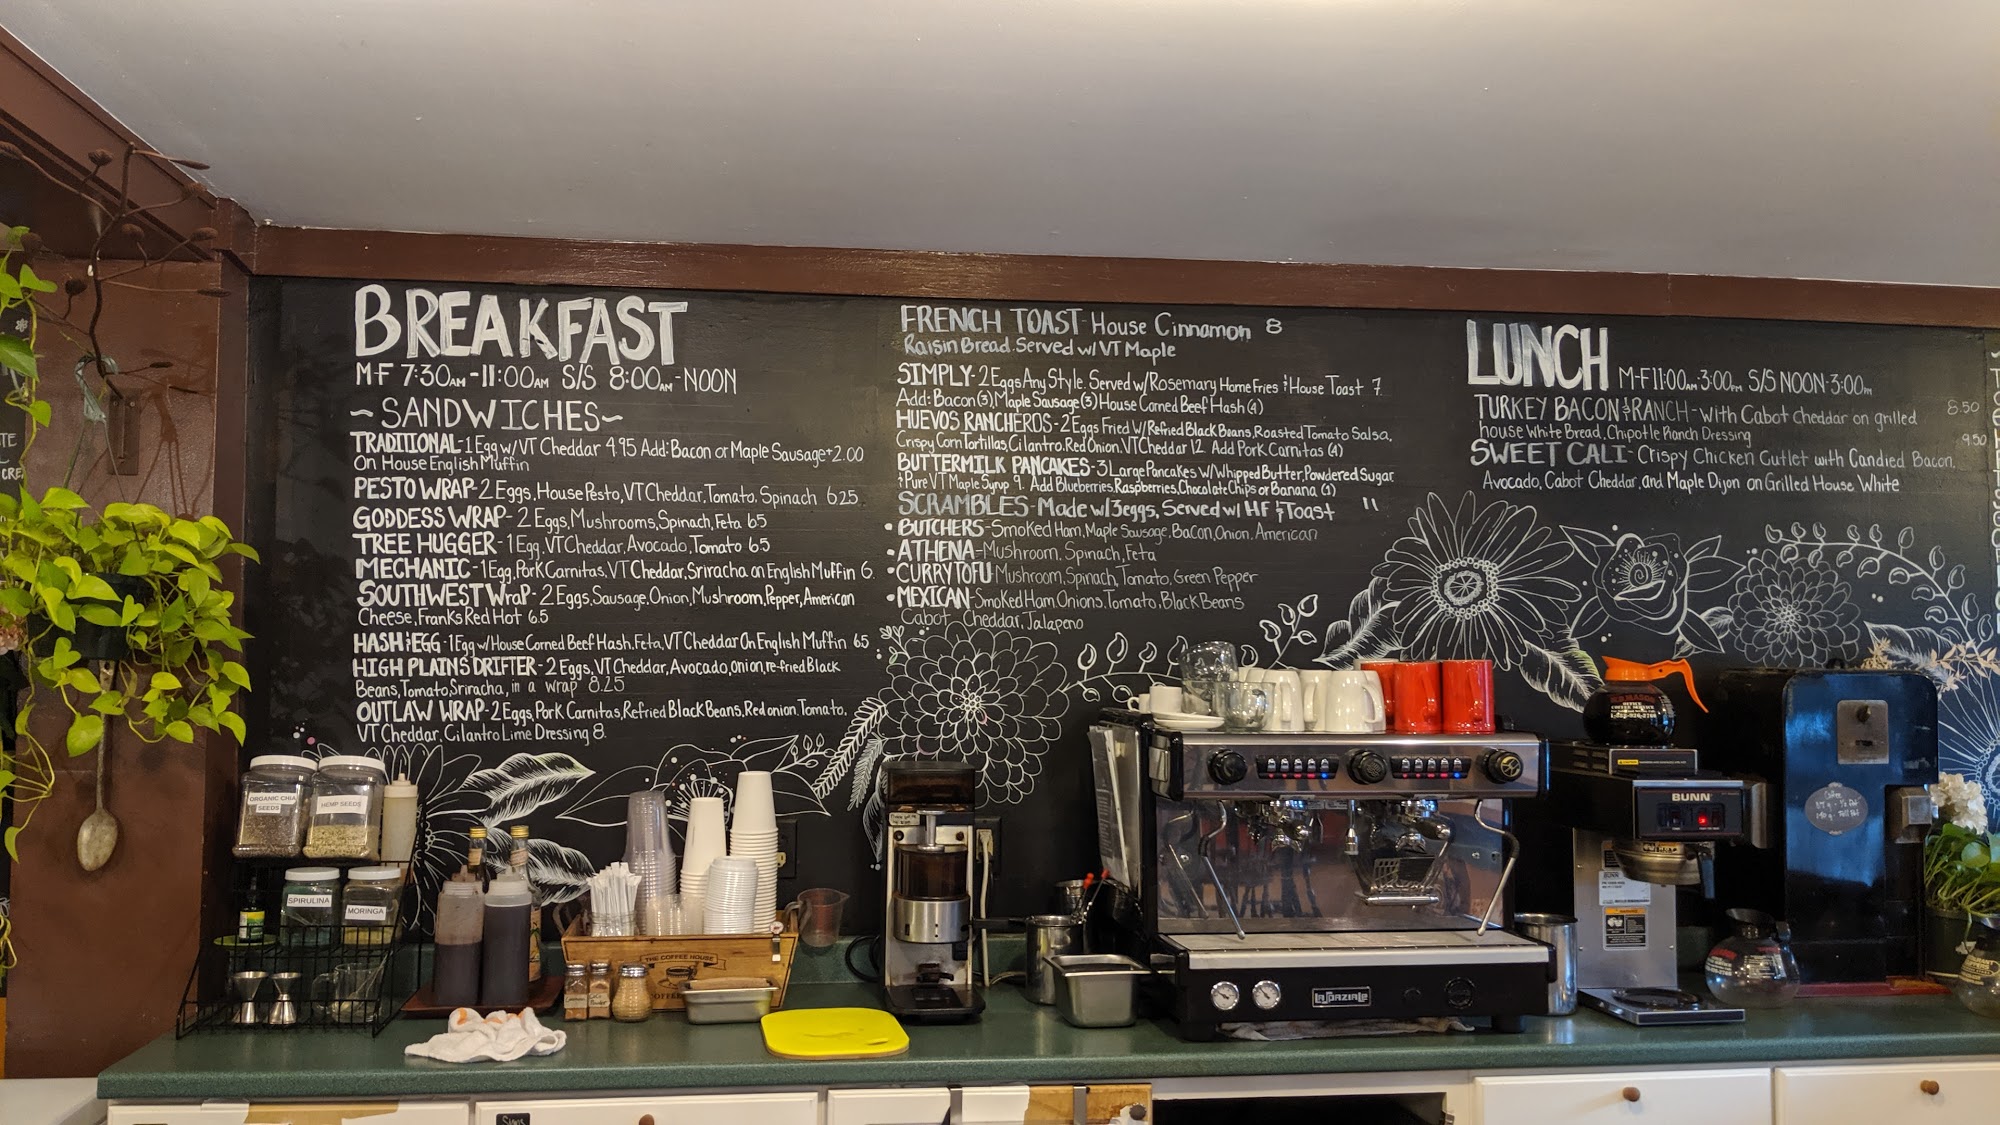 BREAKFAST
M-F 7:30AM-11:00AM S/S 8:00AM-NOON
~SANDWICHES~
TRADITIONAL-1 Egg w/ VT Cheddar 4.95 Add: Bacon or Maple Sausage+2.00
On House English Muffin
PESTO WRAP-2 Eggs, House Pesto, VT Cheddar, Tomato, Spinach 6.25
GODDESS WRAP-2 Eggs, Mushrooms, Spinach, Feta 6.5
TREE HUGGER-1 Egg, VT Cheddar, Avocado, Tomato 6.5
MECHANIC-1 Egg, Pork Carnitas, VT Cheddar, Sriracha on English Muffin 6.
SOUTHWEST WraP-2 Eggs, Sausage, Onion, Mushroom, Pepper, American
Cheese, Franks Red Hot 6.5
HASH & EGG-1 Egg w/ House Corned Beef Hash, Feta, VT Cheddar On English Muffin 6.5
HIGH PLAINS DRIFTER-2 Eggs, VT Cheddar, Avocado, onion, re-fried Black
Beans, Tomato, Sriracha, in a wrap 8.25
OUTLAW WRAP-2 Eggs, Pork Carnitas, Refried Black Beans, Red onion, Tomato,
VT Cheddar, Cilantro Lime Dressing 8.
FRENCH TOAST-House Cinnamon 8
Raisin Bread. Served w/ VT Maple
SIMPLY-2 Eggs Any Style. Served w/ Rosemary Home Fries & House Toast 7
Add: Bacon (3), Maple Sausage (3) House Corned Beef Hash (4)
HUEVOS RANCHEROS-2 Eggs Fried w/ Refried Black Beans, Roasted Tomato Salsa,
Crispy Corn Tortillas, Cilantro, Red Onion, VT Cheddar 12. Add Pork Carnitas (4)
BUTTERMILK PANCAKES-3 Large Pancakes w/ Whipped Butter, Powdered Sugar
& Pure VT Maple Syrup 9. Add Blueberries, Raspberries, Chocolate Chips or Banana (1)
SCRAMBLES-Made w/ 3 eggs, Served w/ HF & Toast 11
• BUTCHERS-Smoked Ham, Maple Sausage, Bacon, Onion, American
• ATHENA-Mushroom, Spinach, Feta
• CURRY TOFU-Mushroom, Spinach, Tomato, Green Pepper
• MEXICAN-Smoked Ham, Onions, Tomato, Black Beans
Cabot Cheddar, Jalapeno
LUNCH
M-F 11:00AM-3:00PM S/S NOON-3:00PM
TURKEY BACON & RANCH-with Cabot cheddar on grilled 8.50
house White Bread, Chipotle Ranch Dressing
SWEET CALI-Crispy Chicken Cutlet with Candied Bacon, 9.50
Avocado, Cabot Cheddar, and Maple Dijon on Grilled House White
ORGANIC CHIA
SEEDS
HEMP SEEDS
SPIRULINA
MORINGA
THE COFFEE HOUSE
LA SPAZIALE
BUNN
Coffee